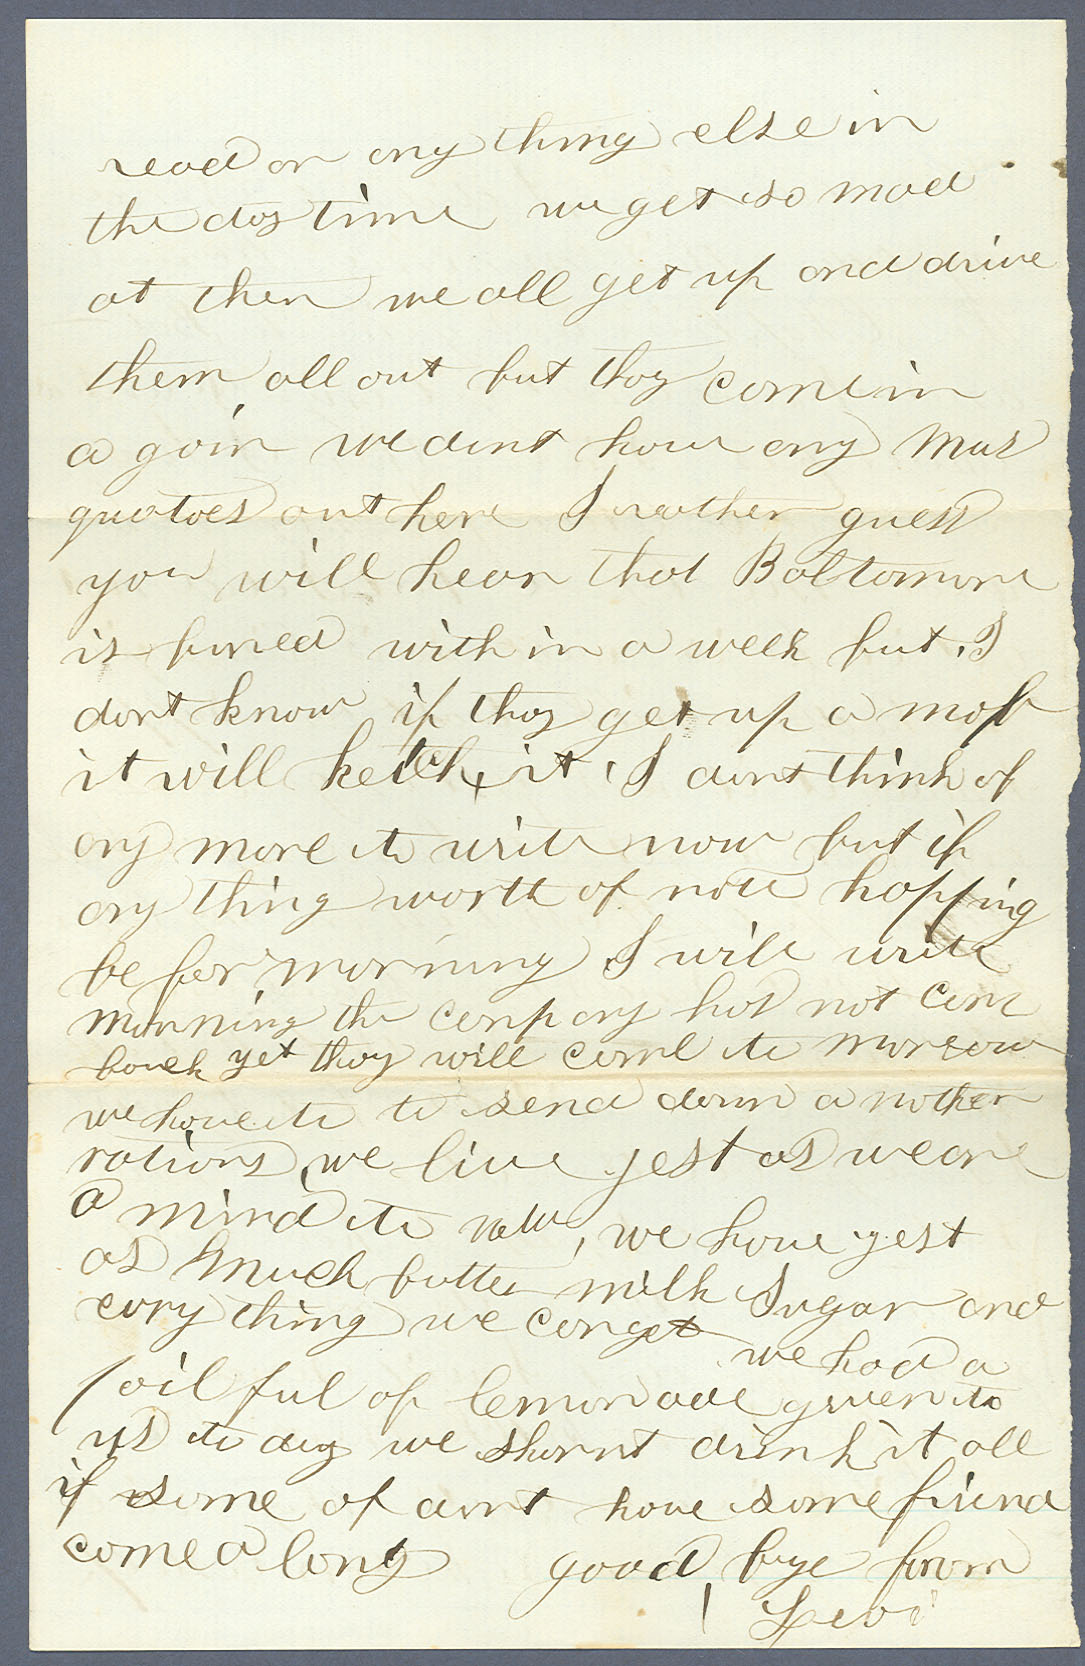 read or any thing else in
the day time we get so mad
at them we all get up and drive
them all out but thay come in
a gain we dont have any Mus
quatoes out here I rather guess
you will hear that Baltomore
is burned with in a week but I
dont know if thay get up a mob
it will ketch it I dont think of
any more to write now but if
any thing worth of note happing
be for morning I will write
morning the company has not come
back yet thay will come to morrow
we have to to send down a nother
rations we live jest as we are
a mind to now, we have jest
as much butter milk Sugar and
evry thing we can get we had a
pail ful of lemonade given to
us to day we shant drink it all
if some of dont have some friend
come a long good bye from
Levi